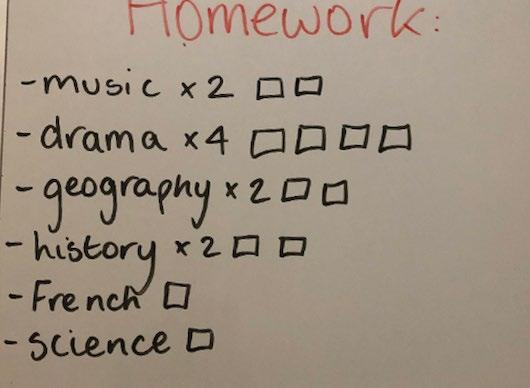 Homework:
- music x 2 □ □
- drama x4 □ □ □ □
- geography x 2 □ □
- history x 2 □ □
- French □
- science □